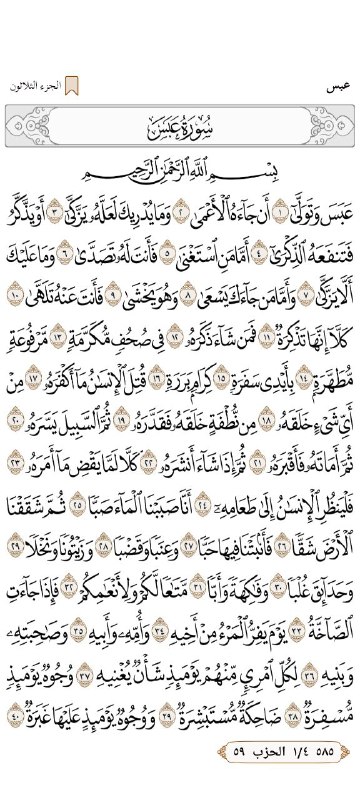 عبس
الجزء الثلاثون
سُورَةُ عَبَسَ
بِسْمِ ٱللَّهِ ٱلرَّحْمَٰنِ ٱلرَّحِيمِ
عَبَسَ وَتَوَلَّىٰٓ ١ أَن جَآءَهُ ٱلْأَعْمَىٰ ٢ وَمَا يُدْرِيكَ لَعَلَّهُۥ يَزَّكَّىٰٓ ٣ أَوْ يَذَّكَّرُ
فَتَنفَعَهُ ٱلذِّكْرَىٰٓ ٤ أَمَّا مَنِ ٱسْتَغْنَىٰ ٥ فَأَنتَ لَهُۥ تَصَدَّىٰ ٦ وَمَا عَلَيْكَ
أَلَّا يَزَّكَّىٰ ٧ وَأَمَّا مَن جَآءَكَ يَسْعَىٰ ٨ وَهُوَ يَخْشَىٰ ٩ فَأَنتَ عَنْهُ تَلَهَّىٰ ١٠
كَلَّآ إِنَّهَا تَذْكِرَةٌ ١١ فَمَن شَآءَ ذَكَرَهُۥ ١٢ فِى صُحُفٍ مُّكَرَّمَةٍ ١٣ مَّرْفُوعَةٍ
مُّطَهَّرَةٍۭ ١٤ بِأَيْدِى سَفَرَةٍ ١٥ كِرَامٍۭ بَرَرَةٍ ١٦ قُتِلَ ٱلْإِنسَٰنُ مَآ أَكْفَرَهُۥ ١٧ مِنْ
أَىِّ شَىْءٍ خَلَقَهُۥ ١٨ مِن نُّطْفَةٍ خَلَقَهُۥ فَقَدَّرَهُۥ ١٩ ثُمَّ ٱلسَّبِيلَ يَسَّرَهُۥ ٢٠
ثُمَّ أَمَاتَهُۥ فَأَقْبَرَهُۥ ٢١ ثُمَّ إِذَا شَآءَ أَنشَرَهُۥ ٢٢ كَلَّا لَمَّا يَقْضِ مَآ أَمَرَهُۥ ٢٣
فَلْيَنظُرِ ٱلْإِنسَٰنُ إِلَىٰ طَعَامِهِۦٓ ٢٤ أَنَّا صَبَبْنَا ٱلْمَآءَ صَبًّا ٢٥ ثُمَّ شَقَقْنَا
ٱلْأَرْضَ شَقًّا ٢٦ فَأَنۢبَتْنَا فِيهَا حَبًّا ٢٧ وَعِنَبًا وَقَضْبًا ٢٨ وَزَيْتُونًا وَنَخْلًا ٢٩
وَحَدَآئِقَ غُلْبًا ٣٠ وَفَٰكِهَةً وَأَبًّا ٣١ مَّتَٰعًا لَّكُمْ وَلِأَنْعَٰمِكُمْ ٣٢ فَإِذَا جَآءَتِ
ٱلصَّآخَّةُ ٣٣ يَوْمَ يَفِرُّ ٱلْمَرْءُ مِنْ أَخِيهِ ٣٤ وَأُمِّهِۦ وَأَبِيهِ ٣٥ وَصَٰحِبَتِهِۦ
وَبَنِيهِ ٣٦ لِكُلِّ ٱمْرِئٍ مِّنْهُمْ يَوْمَئِذٍ شَأْنٌ يُغْنِيهِ ٣٧ وُجُوهٌ يَوْمَئِذٍ
مُّسْفِرَةٌ ٣٨ ضَاحِكَةٌ مُّسْتَبْشِرَةٌ ٣٩ وَوُجُوهٌ يَوْمَئِذٍ عَلَيْهَا غَبَرَةٌ ٤٠
٥٨٥ ١/٤ الحزب ٥٩